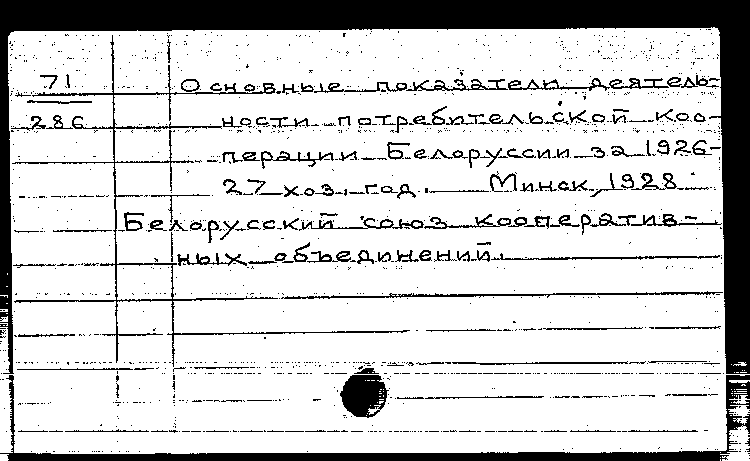 71
286
Основные показатели деятель-
ности потребительской коо-
перации Белоруссии за 1926-
27 хоз. год. Минск, 1928
Белорусский союз кооператив-
ных объединений.